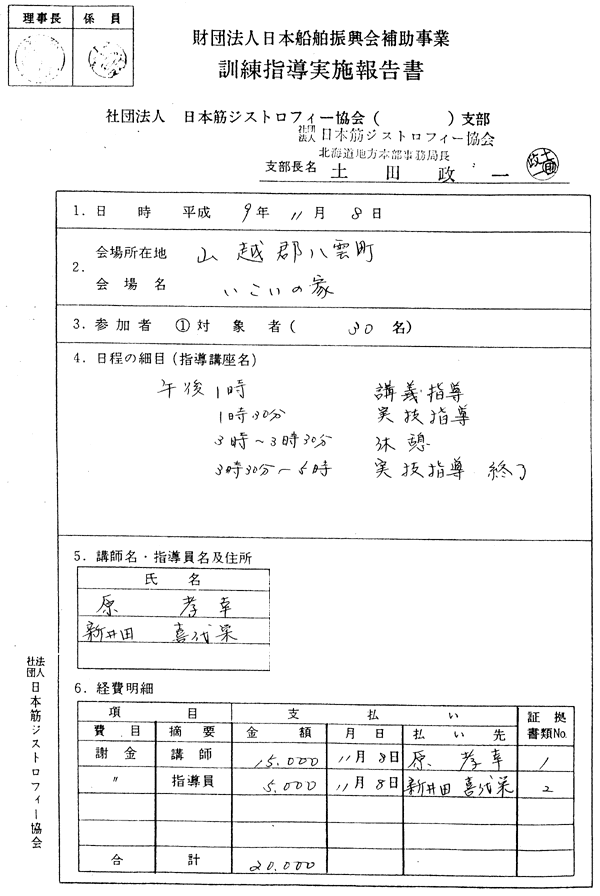 理事長 係員
財団法人日本船舶振興会補助事業
訓練指導実施報告書
社団法人 日本筋ジストロフィー協会( )支部
社団法人 日本筋ジストロフィー協会
北海道地方本部事務局長
支部長名 土田政一
1.日時 平成 9年 11月 8日
2.会場所在地 山越郡八雲町
会場名 いこいの家
3.参加者 ①対象者( 30名)
4.日程の細目(指導講座名)
午後1時 講義指導
1時30分 実技指導
3時~3時30分 休憩
3時30分~5時 実技指導 終了
5.講師名・指導員名及住所
氏名
原 孝幸
新井田 喜代栄
6.経費明細
項目 支払い 証拠書類No.
費目 摘要 金額 月日 払い先
謝金 講師 15,000 11月8日 原 孝幸 1
〃 指導員 5,000 11月8日 新井田 喜代栄 2
合計 20,000
社団法人 日本筋ジストロフィー協会